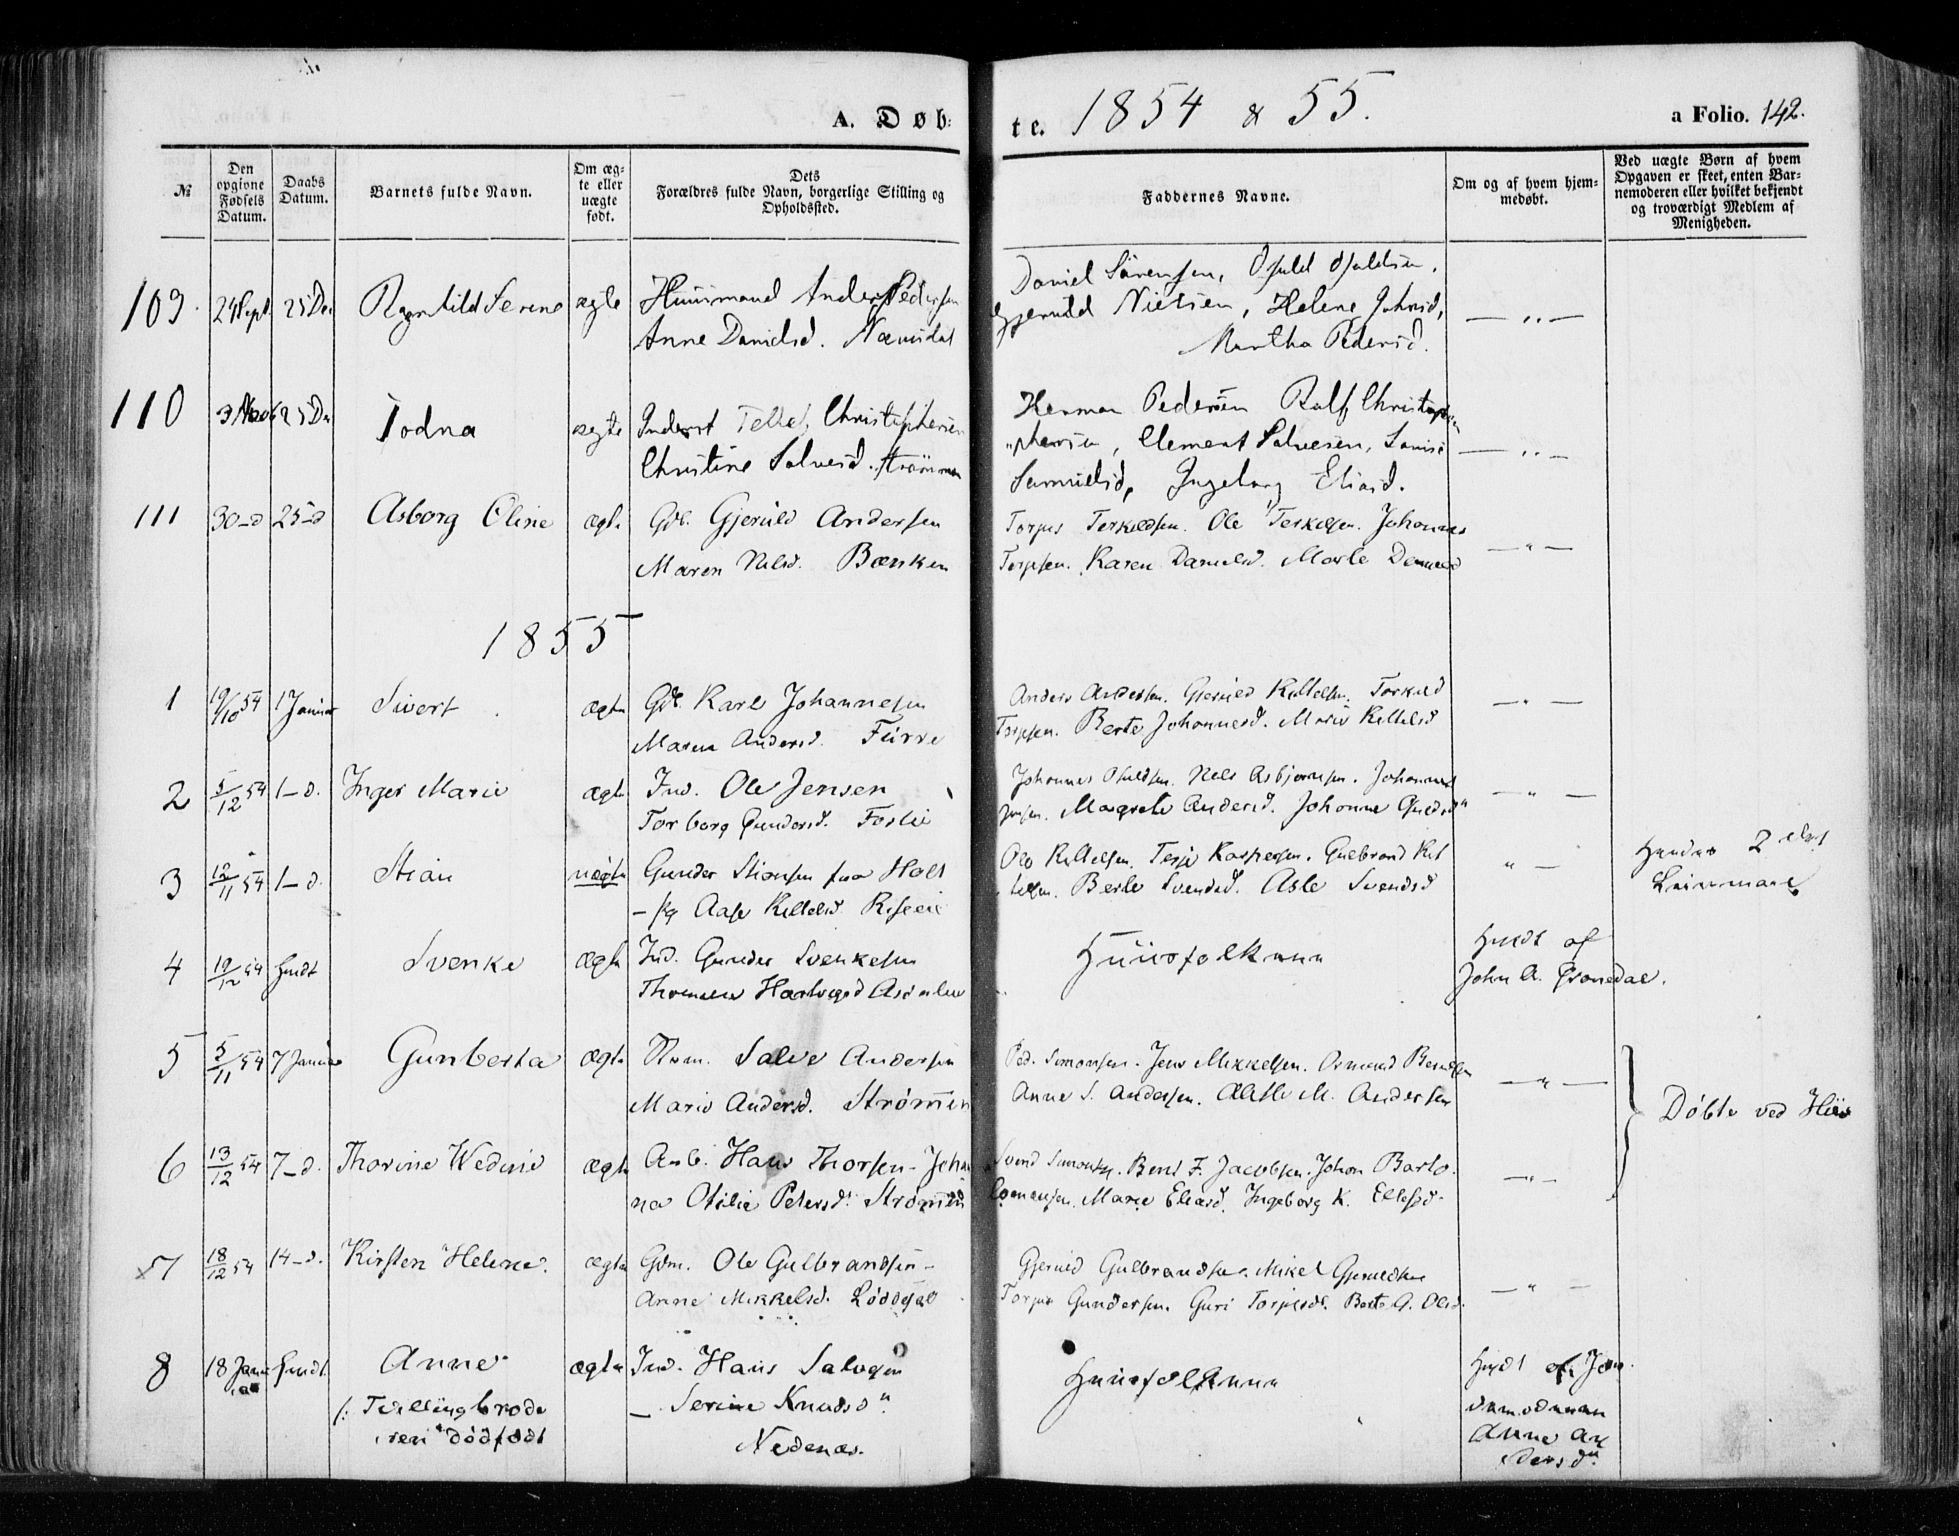 A. Døb:
te. 1854 & 55.
a Folio. 142.
№
Den opgivne Fødsels Datum.
Daabs Datum.
Barnets fulde Navn.
Om ægte eller uægte født.
Dets Forældres fulde Navn, borgerlige Stilling og Opholdssted.
Faddernes Navne.
Om og af hvem hjemmedøbt.
Ved uægte Børn af hvem Opgaven er skeet, enten Barnemoderen eller hvilket bekjendt og troværdigt Medlem af Menigheden.
109. 24 Sept. 25 De Ragnhild Serine ægte Huusmand Anders Pedersen
Anne Danielsd.
Daniel Sörensen,
Nielsen, Helene Johnsd,
Martha Pedersd.
110 3 Nov 25 De Todna ægte Inderst Tellef Christophersen
Christine Salvesd. Strömmen
Herman Pedersen Rolf Christo
phersen, Clement Salvesen,
Samuelsd, Ingeborg Eliasd.
111 30_d 25_d Asborg Oline ægte Gdb. Gjeruld Andersen
Maren Nilsd. Bænken
Torjus Terkelsen. Ole Terkelsen. Johannes
Torjusen. Karen Danielsd.
1855
1 19/10 54 1 Januar Sivert ægte Gdb. Karl Johannesen
Maren Andersd. Furre
Anders Andersen. Gjeruld Kittelsen. Torkild
Torjusen. Berte Johannesd. Marie Kittelsd
2 5/12 54 1_d. Inger Marie ægte Ind. Ole Jensen
Torborg Gundersd. Foslie
Johannes Nils Asbjørnsen. Johannes
Jensen. Margrete Andersd. Johanne
3 12/11 54 1_d. Stian uægte Gunder Stiansen fra Holt
- pg Aase Kittelsd.
Ole Kittelsen. Terje Kaspersen. Gulbrand Kit
telsen. Berte Svendsd. Asle Svendsd
Hendes 2det
Leiermaal
4 19/12 54 hmdt Svenke ægte Ind. Gunder Svenkesen
Huusfolkene
hmdt af
John A.
5 5/11 54 7 Januar Gunberta ægte Salve Andersen
Marie Andersd. Strømmen
Ped. Simonsen. Jens Mikkelsen. Osmund
Anne S. Andersen. M. Andersen
Døbte ved Hiis
6 13/12 54 7_d. Thorine Wedine ægte Arb. Hans Thorsen - Johan
na Otilie Petersd. Strømmen
Svend Simonsen. Bent F. Jacobsen. Johan Barto-
lomeusen. Marie Eliasd. Ingeborg K. Ellefsd.
7 18/12 54 14_d. Kirsten Helene. ægte Gdm. Ole Gulbrandsen -
Anne Mikkelsd. Løddesøl
Gjeruld Gulbrandsen. Mikel Gjeruldsen
Torjus Gundersen. Guri Torjusd. Berte A. Olsd.
8 18 Janu
ar hmdt. Anne
/: Tvillingbrode
ren dødfødt
ægte Ind. Hans Salvesen
_ Serine Knudsdn
Nedenæs.
Huusfolkene
hmdt af Jor
demoderen
Anne An
dersdn.